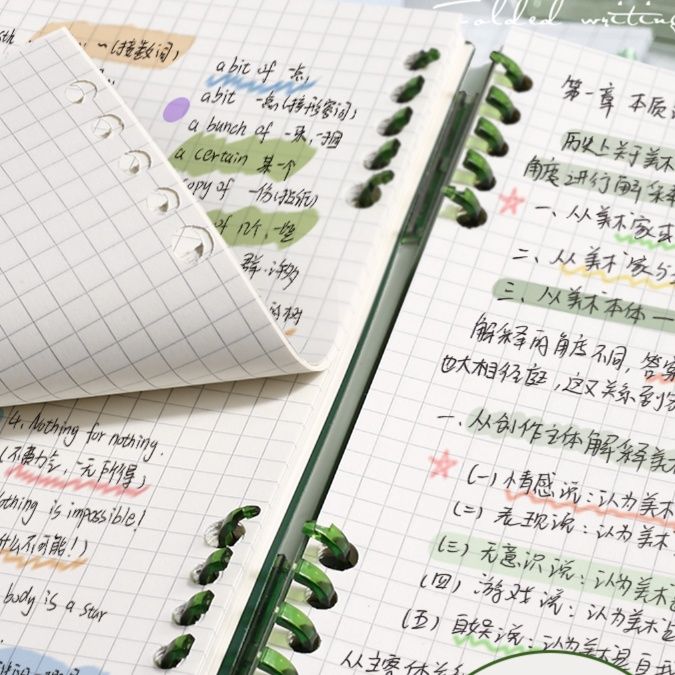 Folded writing
(接数词)
a bit of 一点
a bit 一点(接形容词)
a bunch of 一束,一捆
a certain 某一个
copy of 一份
of 几个,一些
群,许多
的树
4. Nothing for nothing.
(不费力气,一无所得)
nothing is impossible!
什么不可能!)
body is a star
第一章 本质
历史上关于美术
角度进行解释
一、从美术家
二、从美术家与
三、从美术本体一
解释的角度不同,答案
也大相径庭,这又关系到
一、从创作主体解释美
(一)情感说:认为美术
(二)表现说:认为美术
(三)无意识说:认为美术
(四)游戏说:认为美术
(五)自娱说:认为美术是自
从主客体关系